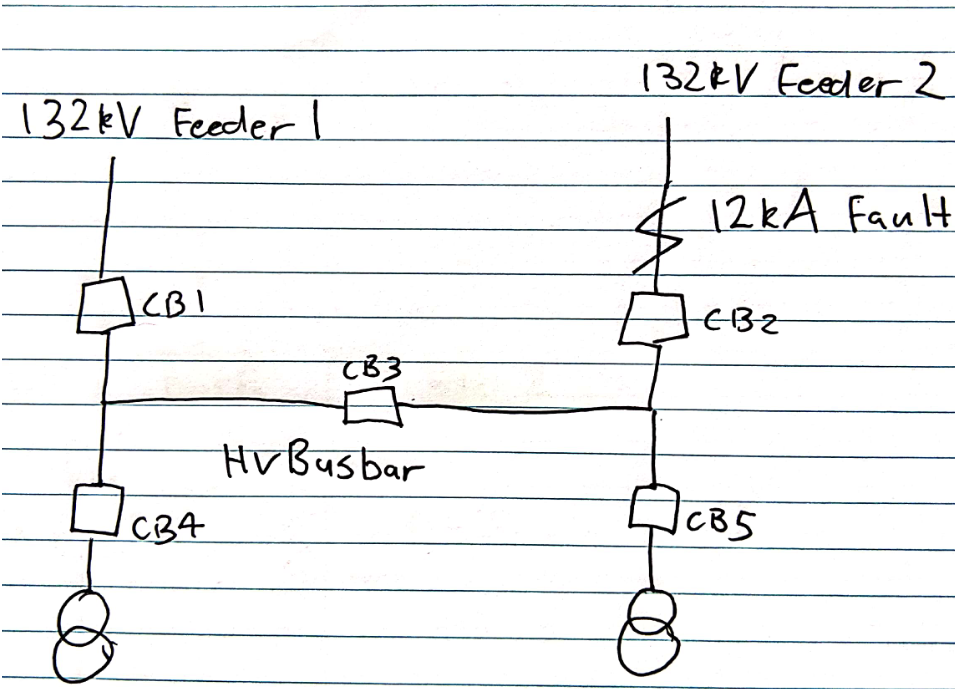 132kV Feeder 2
132kV Feeder 1
12kA Fault
CB1
CB2
CB3
HV Busbar
CB4
CB5